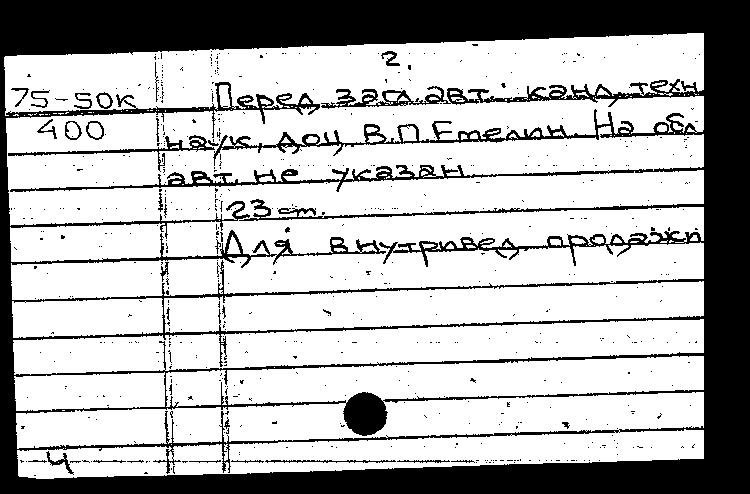 2.
75-50к Перед загл. авт.: канд. техн.
400 наук, доц. В.П. Емелин. На обл.
авт. не указан.
23 cm.
Для внутривед. продажи
4